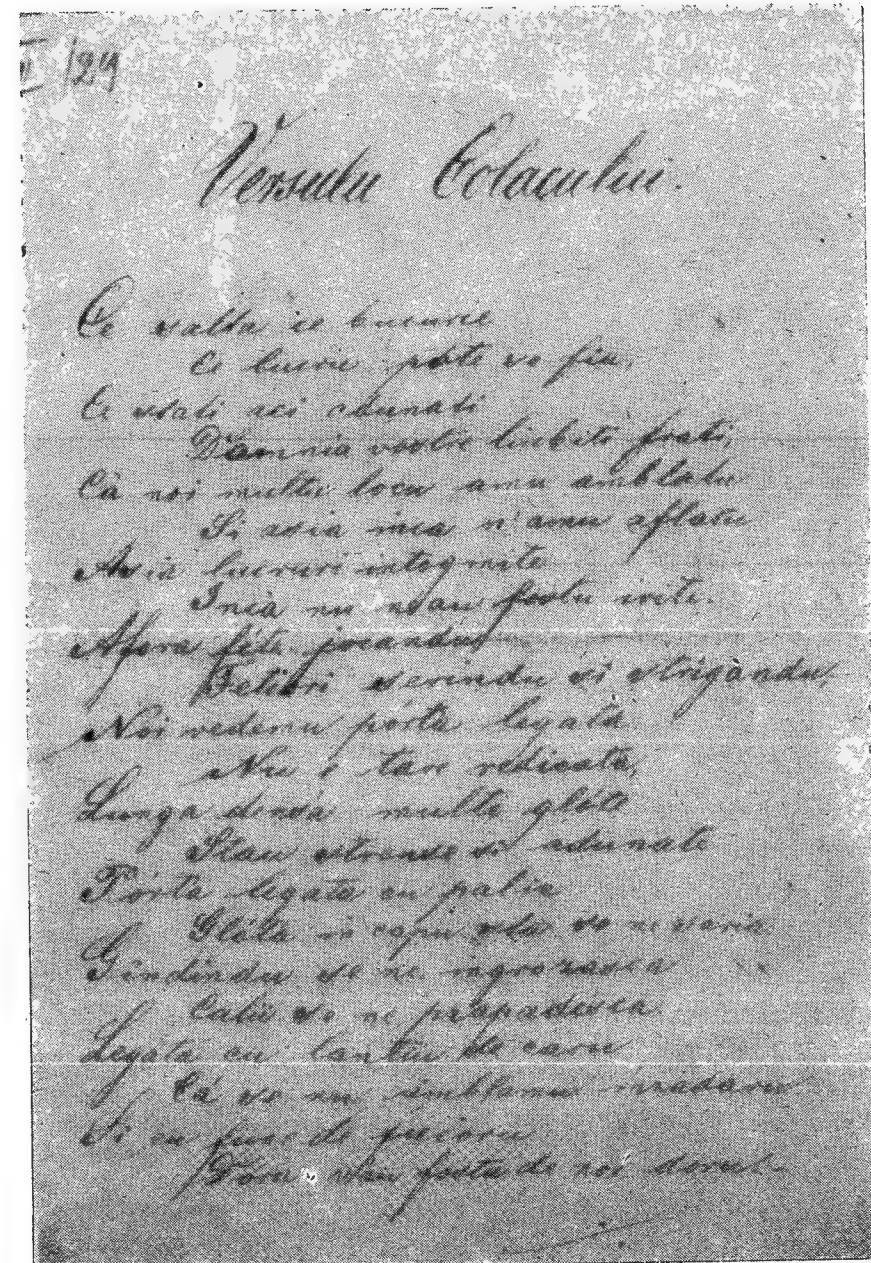 /29
Versulu Colacului.
Ce salta ce bucurie
Ce lucru pote so fia,
Ce stati aci adunati
Domnia vostre iubiti frati,
Cà noi multu locu amu amblatu
Si asia inca n'amu aflatu
Asia lucruri intogmite
Inca nu nsau fostu ivite.
Afora fete jocandu
Feciori serindu si strigandu,
Noi vedemu pórta legata
Nu e tare redicata,
Lunga densa multe glóte
Stau strense si adunate
Pórta legata cu palia
Glóta in capu sta so ne
Gindindu se ne ingrozasca
Calu so ne prapadesca.
Legata cu lantiu de caru
Cá so nu imblamu
Si cu fune de fuioru
Dóra fostu de noi doru.